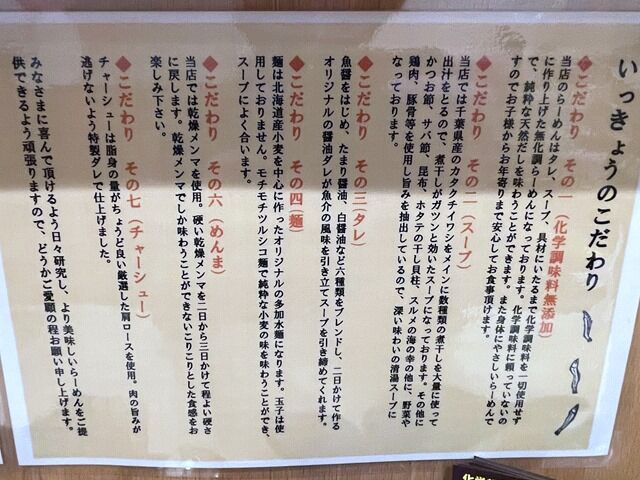 いっきょうのこだわり
◆こだわり その一（化学調味料無添加）
当店のらーめんはタレ、スープ、具材にいたるまで化学調味料を一切使用せず
に作り上げた無化調らーめんになっております。化学調味料に頼っていないの
で、純粋な天然だしを味わうことができます。また身体にやさしいらーめんで
すのでお子様からお年寄りまで安心してお食事頂けます。
◆こだわり その二（スープ）
当店では千葉県産のカタクチイワシをメインに数種類の煮干しを大量に使って
出汁をとるので、煮干しがガツンと効いたスープになっております。その他に
かつお節、サバ節、昆布、ホタテの干し貝柱、スルメの海の幸の他に、野菜や
鶏肉、豚骨等を使用し旨みを抽出しているので、深い味わいの清湯スープに
なっております。
◆こだわり その三（タレ）
魚醤をはじめ、たまり醤油、白醤油など六種類をブレンドし、二日かけて作る
オリジナルの醤油ダレが魚介の風味を引き立てスープを引き締めてくれます。
◆こだわり その四（麺）
麺は北海道産小麦を中心に作ったオリジナルの多加水麺になります。玉子は使
用しておりません。モチモチツルシコ麺で純粋な小麦の味を味わうことができ、
スープによく合います。
◆こだわり その六（めんま）
当店では乾燥メンマを使用。硬い乾燥メンマを二日から三日かけて程よい硬さ
に戻します。乾燥メンマでしか味わうことができないこりこりとした食感をお
楽しみ下さい。
◆こだわり その七（チャーシュー）
チャーシューは脂身の量がちょうど良い厳選した肩ロースを使用。肉の旨みが
逃げないよう特製ダレで仕上げました。
みなさまに喜んで頂けるよう日々研究し、より美味しいらーめんをご提
供できるよう頑張りますので、どうかご愛願の程お願い申し上げます。